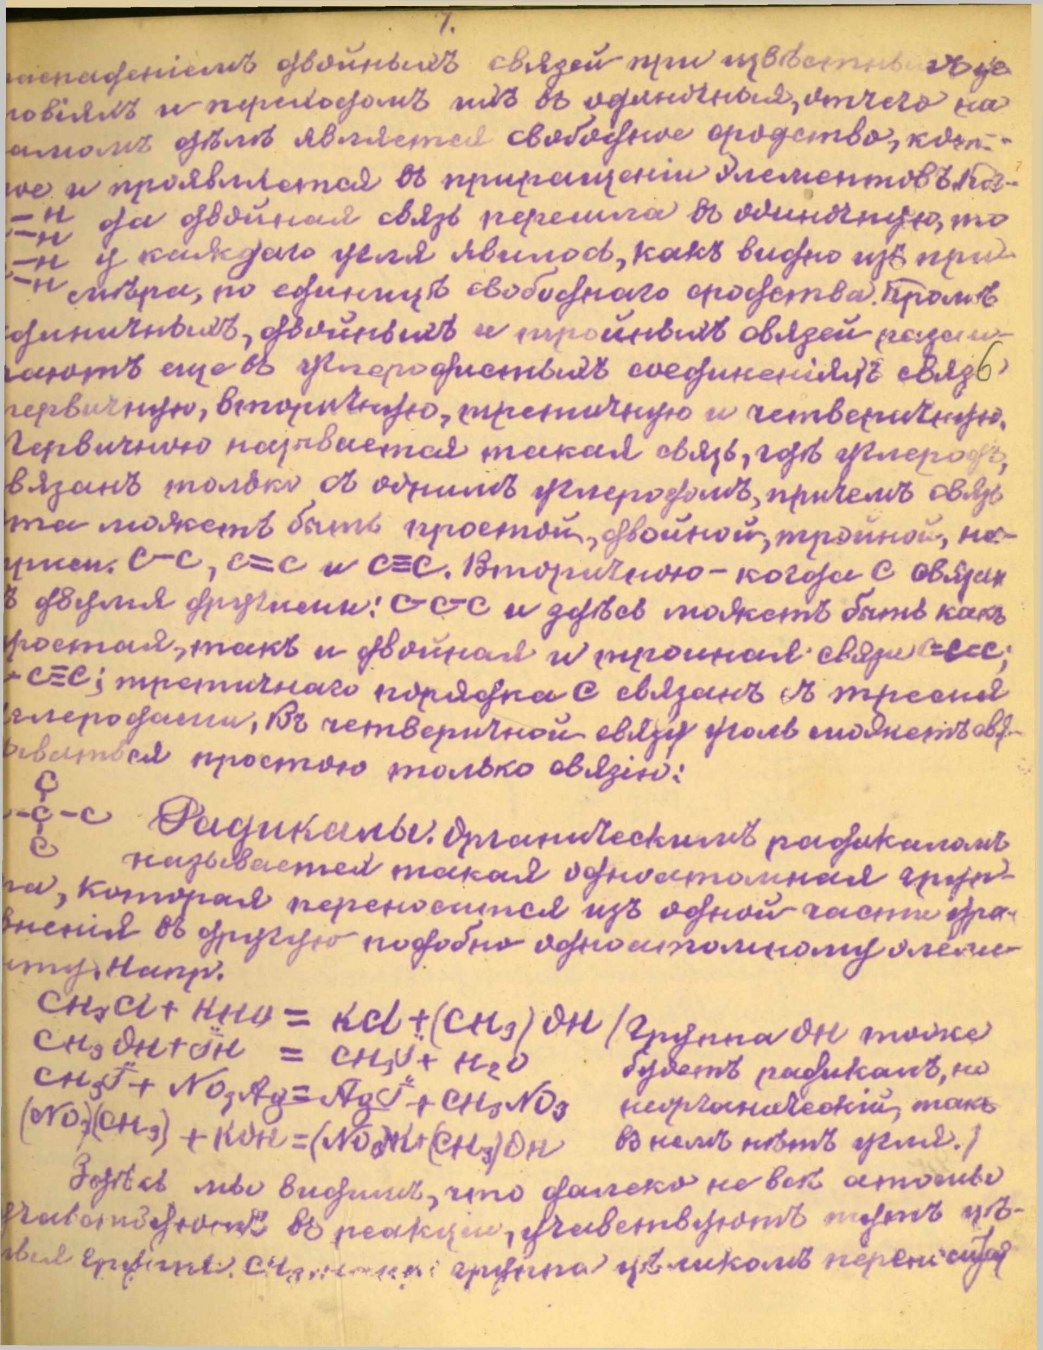 7.
распаденіемъ двойныхъ связей при извѣстныхъ ус
ловіяхъ и переходомъ ихъ въ одиночныя, отчего на
самомъ дѣлѣ является свободное сродство, кото-
рое и проявляется въ приращеніи элементовъ. Ког-
=Н да двойная связь перешла въ одиночную, то
-Н
-Н у каждаго угля явилось, какъ видно изъ при-
-Н мѣра, по единицѣ свободнаго сродства. Кромѣ
единичныхъ, двойныхъ и тройныхъ связей разли-
чаютъ еще въ углеродистыхъ соединеніяхъ связь 6
первичную, вторичную, третичную и четверичную.
Первичною называется такая связь, гдѣ углеродъ,
связанъ только съ однимъ углеродомъ, причемъ связь
эта можетъ быть простой, двойной, тройной, на-
прим. C-C, C=C и C≡C. Вторичною - когда С связан
ъ двумя другими: C-C-C и здѣсь можетъ быть какъ
простая, такъ и двойная и тройная связи C=C=C;
-C≡C; третичнаго порядка С связанъ съ тремя
углеродами, въ четверичной связи уголь можетъ свя-
зываться простою только связію:
C
-C-C Радикалы. Органическимъ радикаломъ
C
называется такая одноатомная груп-
па, которая переносится изъ одной части урав-
внения въ другую подобно одноатомному элеме-
нту. Напр.
CH₃Cl + KHO = KCl + (CH₃)OH (Группа OH тоже
CH₃OH + JH = CH₃J + H₂O будетъ радикалъ, но
CH₃J + NO₃Ag = AgJ + CH₃NO₃ неорганическій, такъ
(NO₃)(CH₃) + KOH = (NO₃)K + (CH₃)OH въ немъ нѣтъ угля.)
Здѣсь мы видимъ, что далеко не всѣ атомы
участвуютъ въ реакціи, участвуютъ тутъ цѣ-
лыя группы. группа цѣликомъ переносится